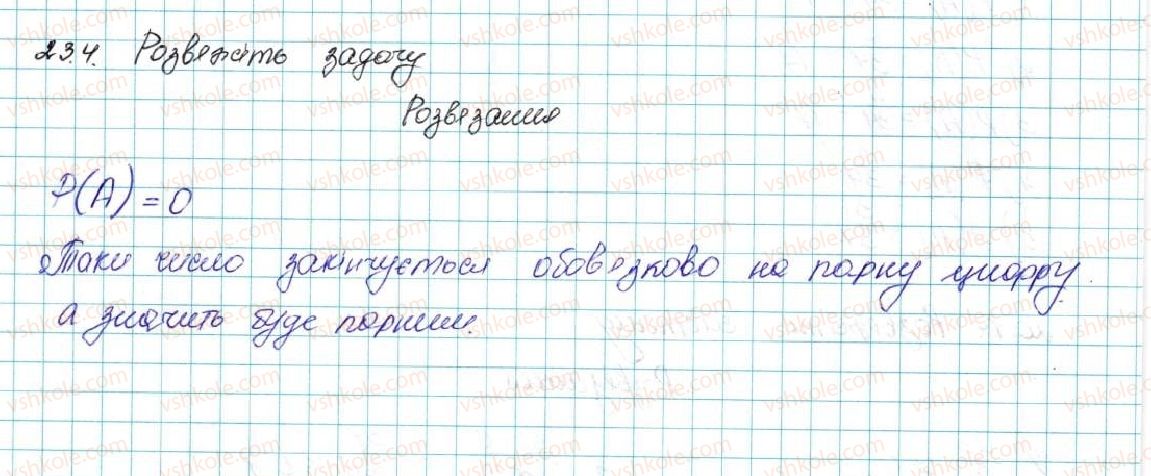 23.4. Розвяжіть задачу
Розвязання
P(A) = 0
Таке число закінчується обов'язково на парну цифру.
а значить буде парним.